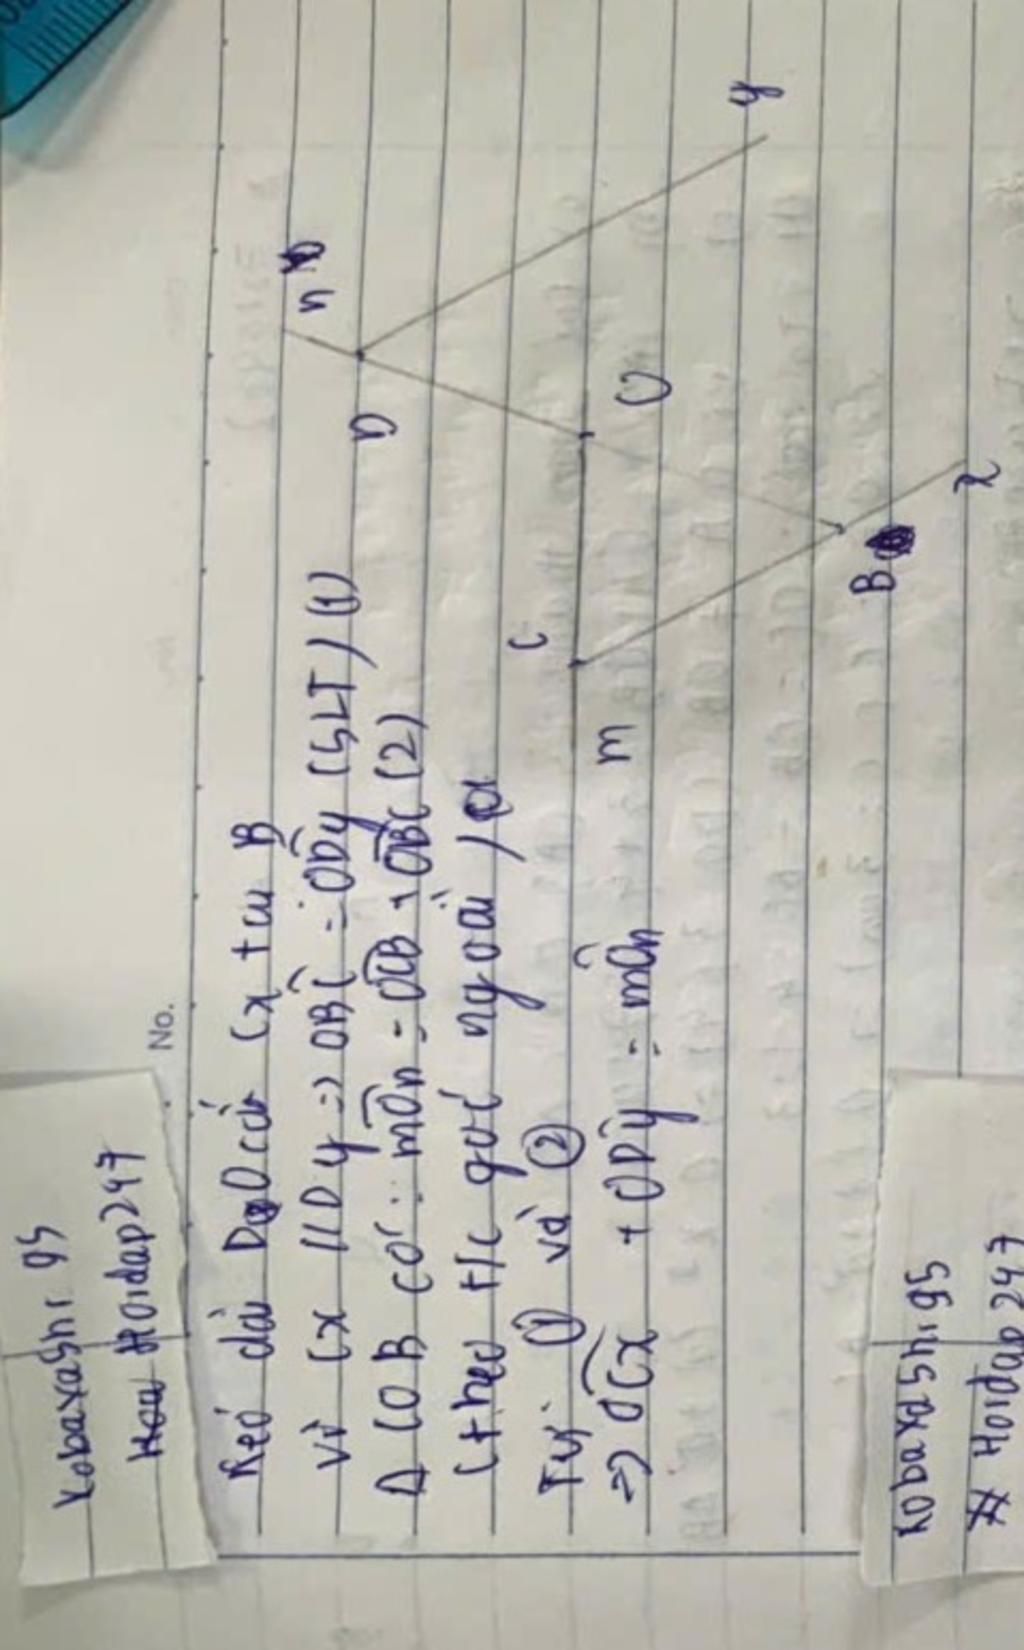 Kobaxashi 95
Hoidap247
No.
Kéo dài DO cắt Cx tại B
Vì Cx // Dy => OBC = ODy (SLT) (1)
Δ COB có: mOn = OCB + OBC (2)
(theo t/c góc ngoài)
Từ (1) và (2)
=> OCx + ODy = mOn
n
D
y
O
C
m
B
x
Kobaxashi 95
# Hoidap 247